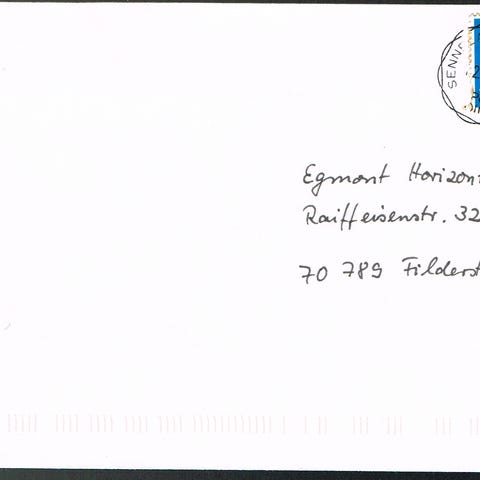 SENN
Egmont Horizon
Raiffeisenstr. 32
70 789 Filderst